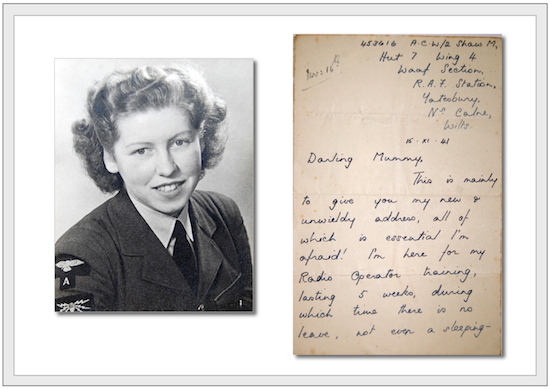 453616 A.C.W/2 Shaw M,
Hut 7 Wing 4
16th
Waaf Section,
R.A.F. Station,
Yatesbury,
Nr Calne,
Wilts.
15·XI·41
Darling Mummy,
This is mainly
to give you my new &
unwieldy address, all of
which is essential I'm
afraid! I'm here for my
Radio Operator training,
lasting 5 weeks, during
which time there is no
leave, not even a sleeping-
A